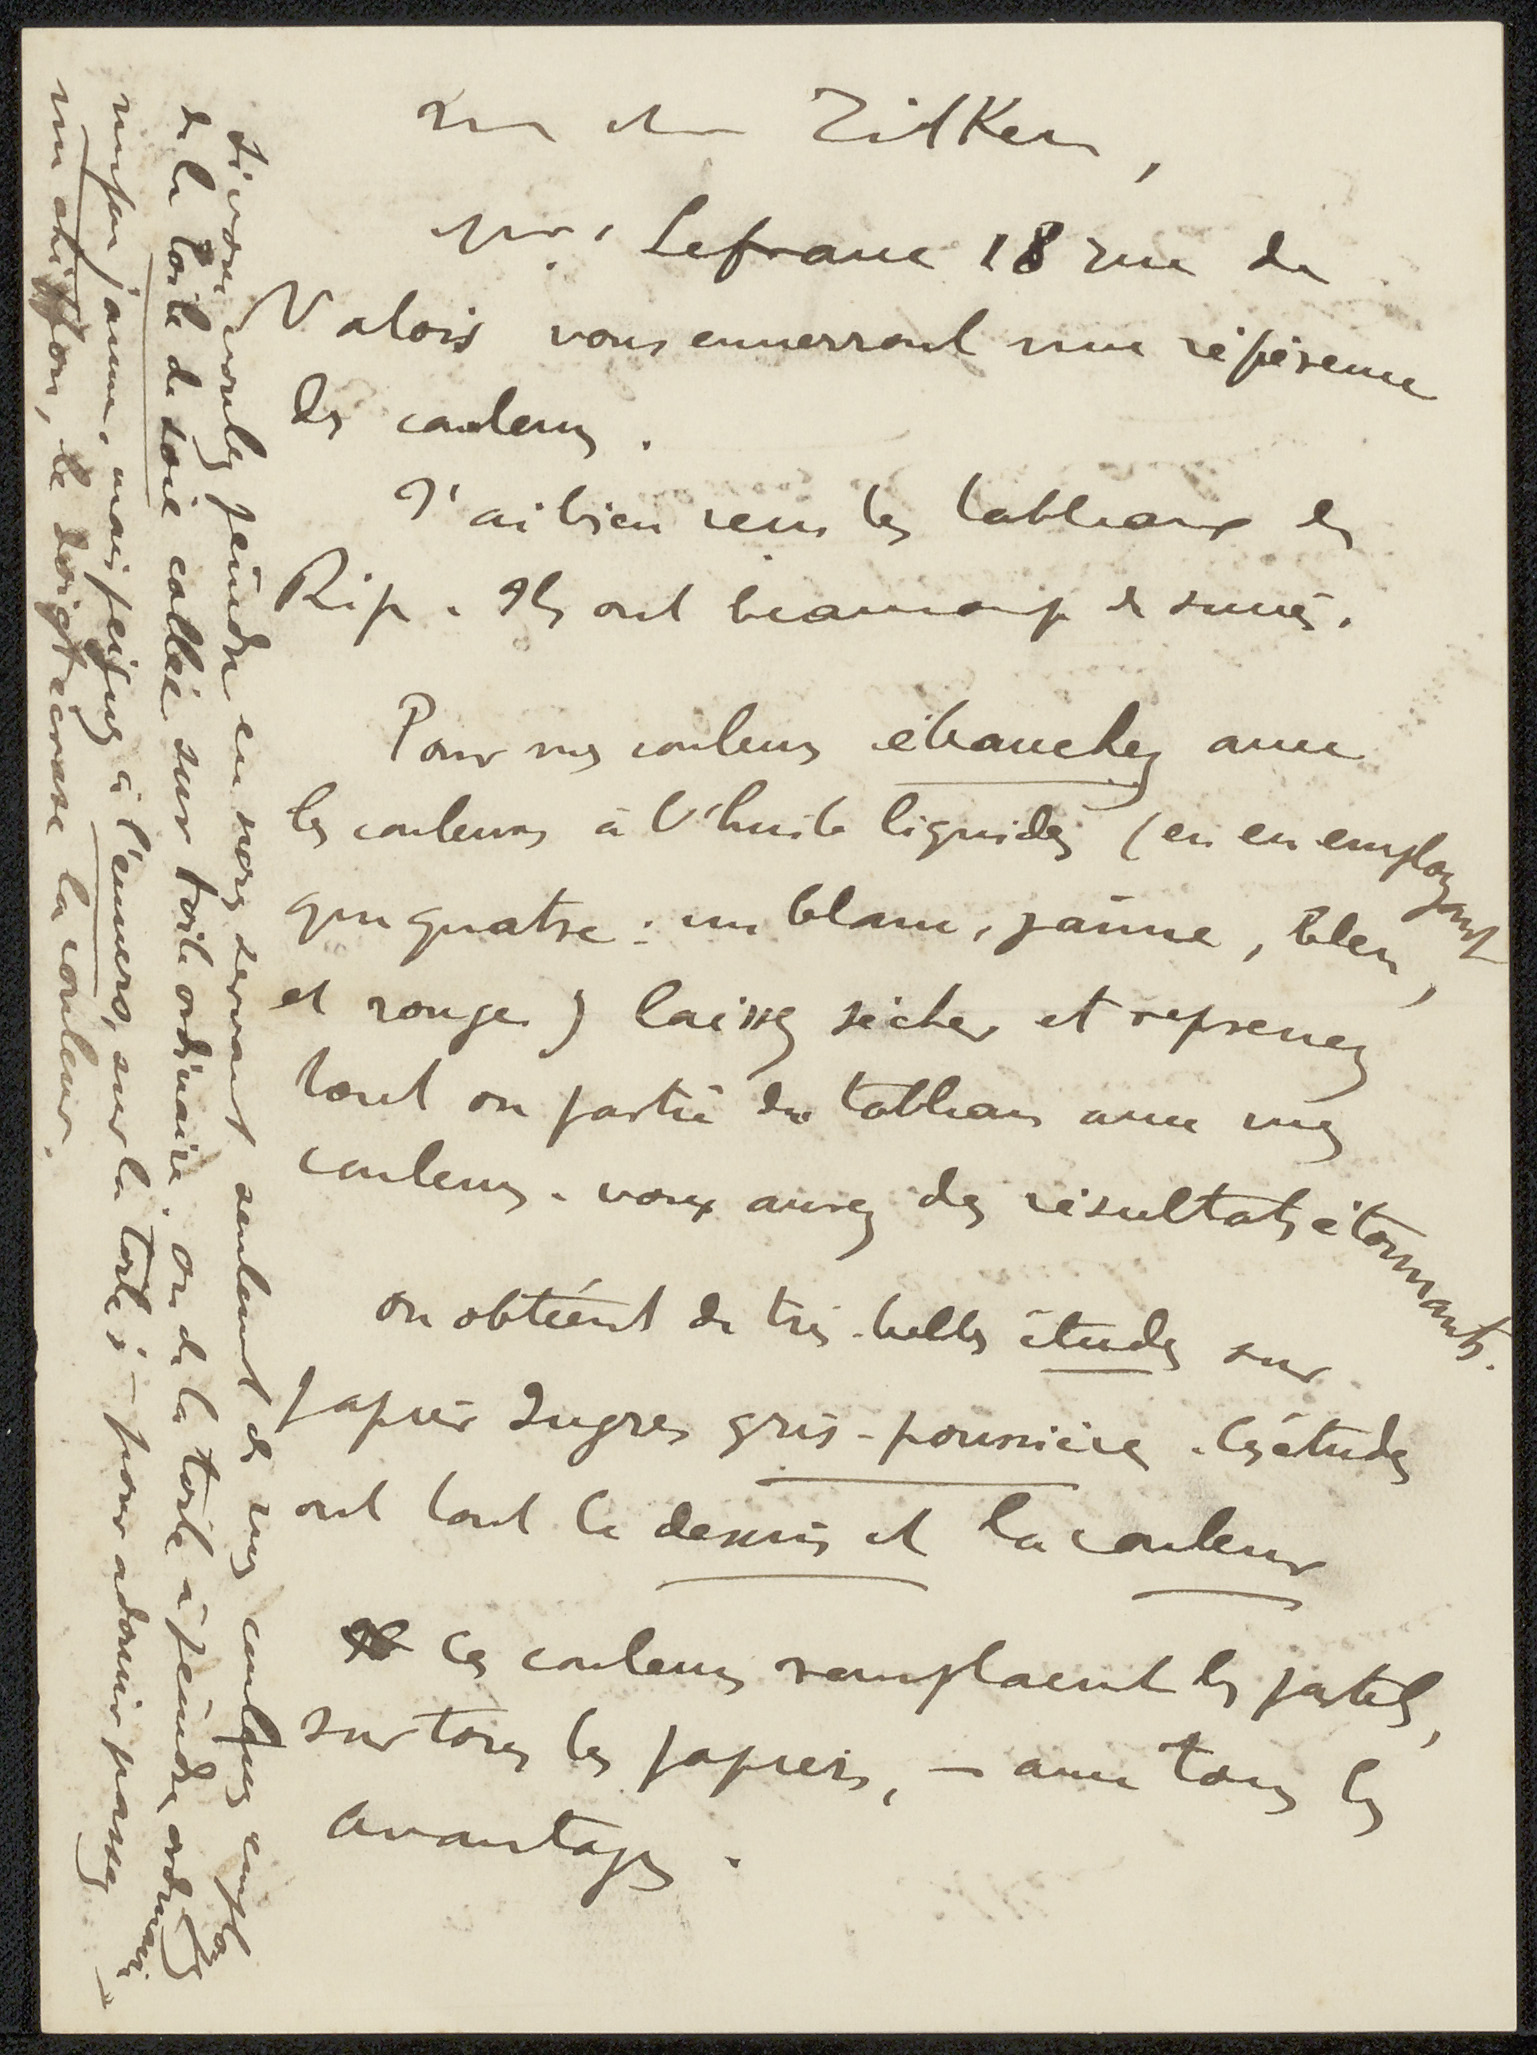 Mon cher Zilken,
Mrs Lefranc 18 rue de
Valois vous enverront une référence
des couleurs.
J'ai bien reçu les tableaux de
Rip. Ils ont beaucoup de succès.
Pour mes couleurs ébauchez avec
les couleurs à l'huile liquides (en en employant
que quatre : un blanc, jaune, bleu,
et rouge) laissez sécher et reprenez
tout ou partie du tableau avec mes
couleurs. vous aurez des résultats étonnants.
on obtient de très belles études sur
papier Ingres gris-poussière. les études
ont tout le dessin et la couleur
ces couleurs remplacent les pastels,
sur tous les papiers, – avec tous les
avantages.
Si vous voulez peindre en vous servant seulement de mes couleurs employez
de la toile de soie collée sur toile ordinaire. ou de la toile à peindre ordinaire
un peu jaune, mais peignez à l'envers, sur la toile ; – pour adoucir passez –
un chiffon, le doigt écrase la couleur.